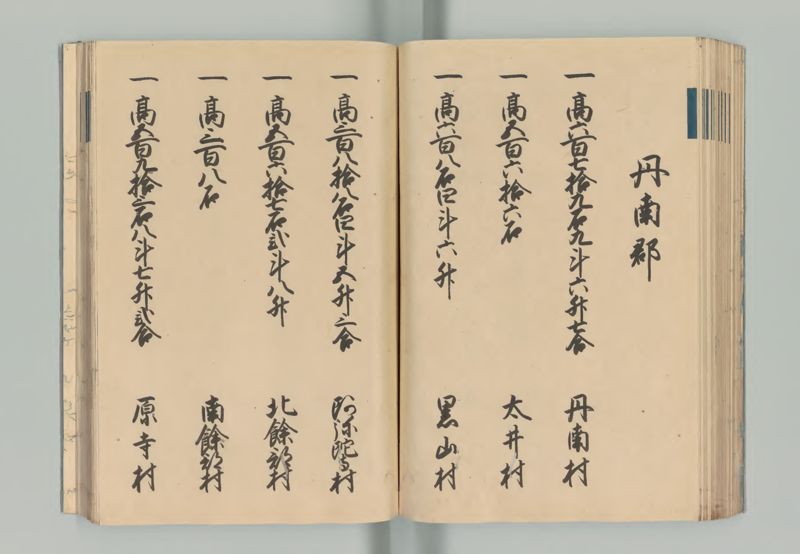 丹南郡
一 高六百七拾九石九斗六升七合 丹南村
一 高五百六拾六石 太井村
一 高六百八石四斗六升 黒山村
一 高三百八拾八石四斗五升三合 阿弥陀寺村
一 高五百六拾七石弐斗八升 北餘部村
一 高三百八石 南餘部村
一 高五百九拾三石八斗七升弐合 原寺村